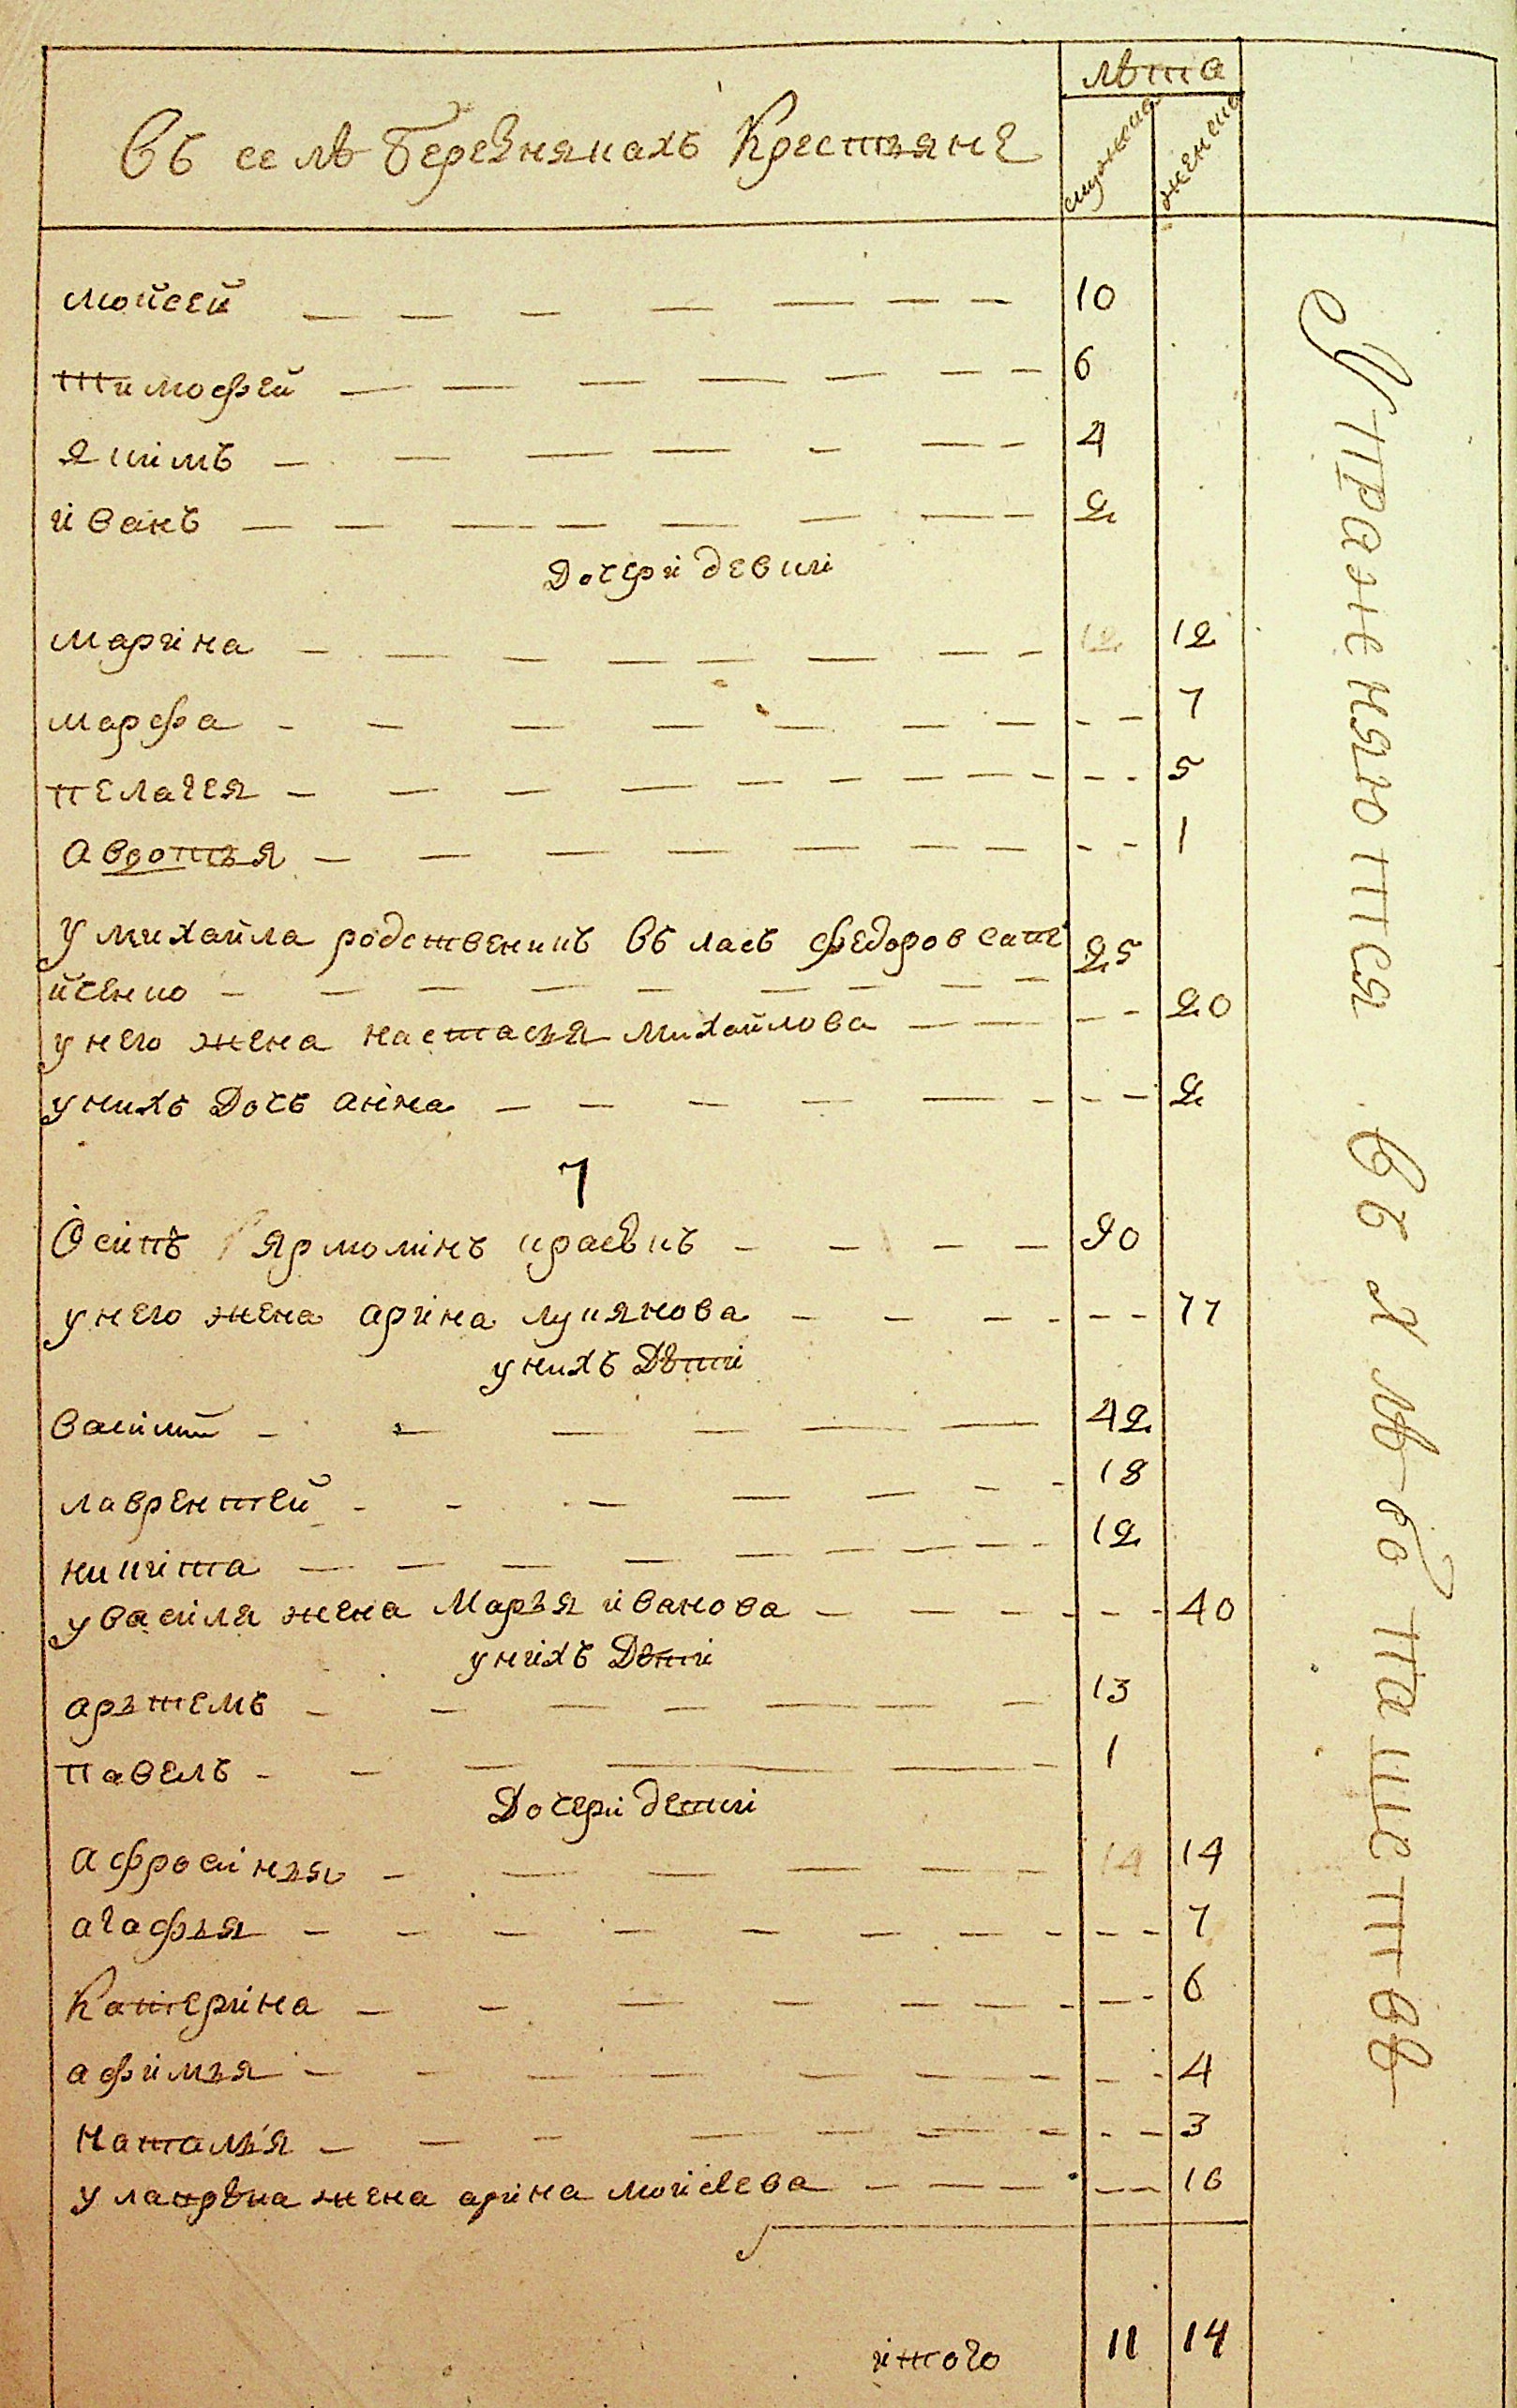 лѣта
Въ селѣ Беревнякахъ Крестьяне
мужеска
женска
мойсей — — — 10
тимофей — — — 6
якимъ — — — 4
йванъ — — — 2
Дочери девки
марина — — — 12 12
марфа — — — 7
пелагея — — — 5
авдотья — — — 1
У михайла родственикъ власъ федоров
25
у него жена настасья михайлова — — — 20
у нихъ Дочь анна — — — 2
7
Осипъ ярмолинъ краевкъ — — — 90
у него жена арина лукянова — — — 77
у нихъ Дѣти
василий — — — 42
лаврентей — — — 18
никита — — — 12
у василя жена Марья иванова — — — 40
у нихъ Дѣти
арьтемъ — — — 13
павелъ — — — 1
Дочери девки
афросинья — — — 14 14
агафья — — — 7
Катерина — — — 6
афимья — — — 4
наталья — — — 3
у жена арина моисеева — — — 16
итого 11 14
Упражняются въ хлѣбопашестве